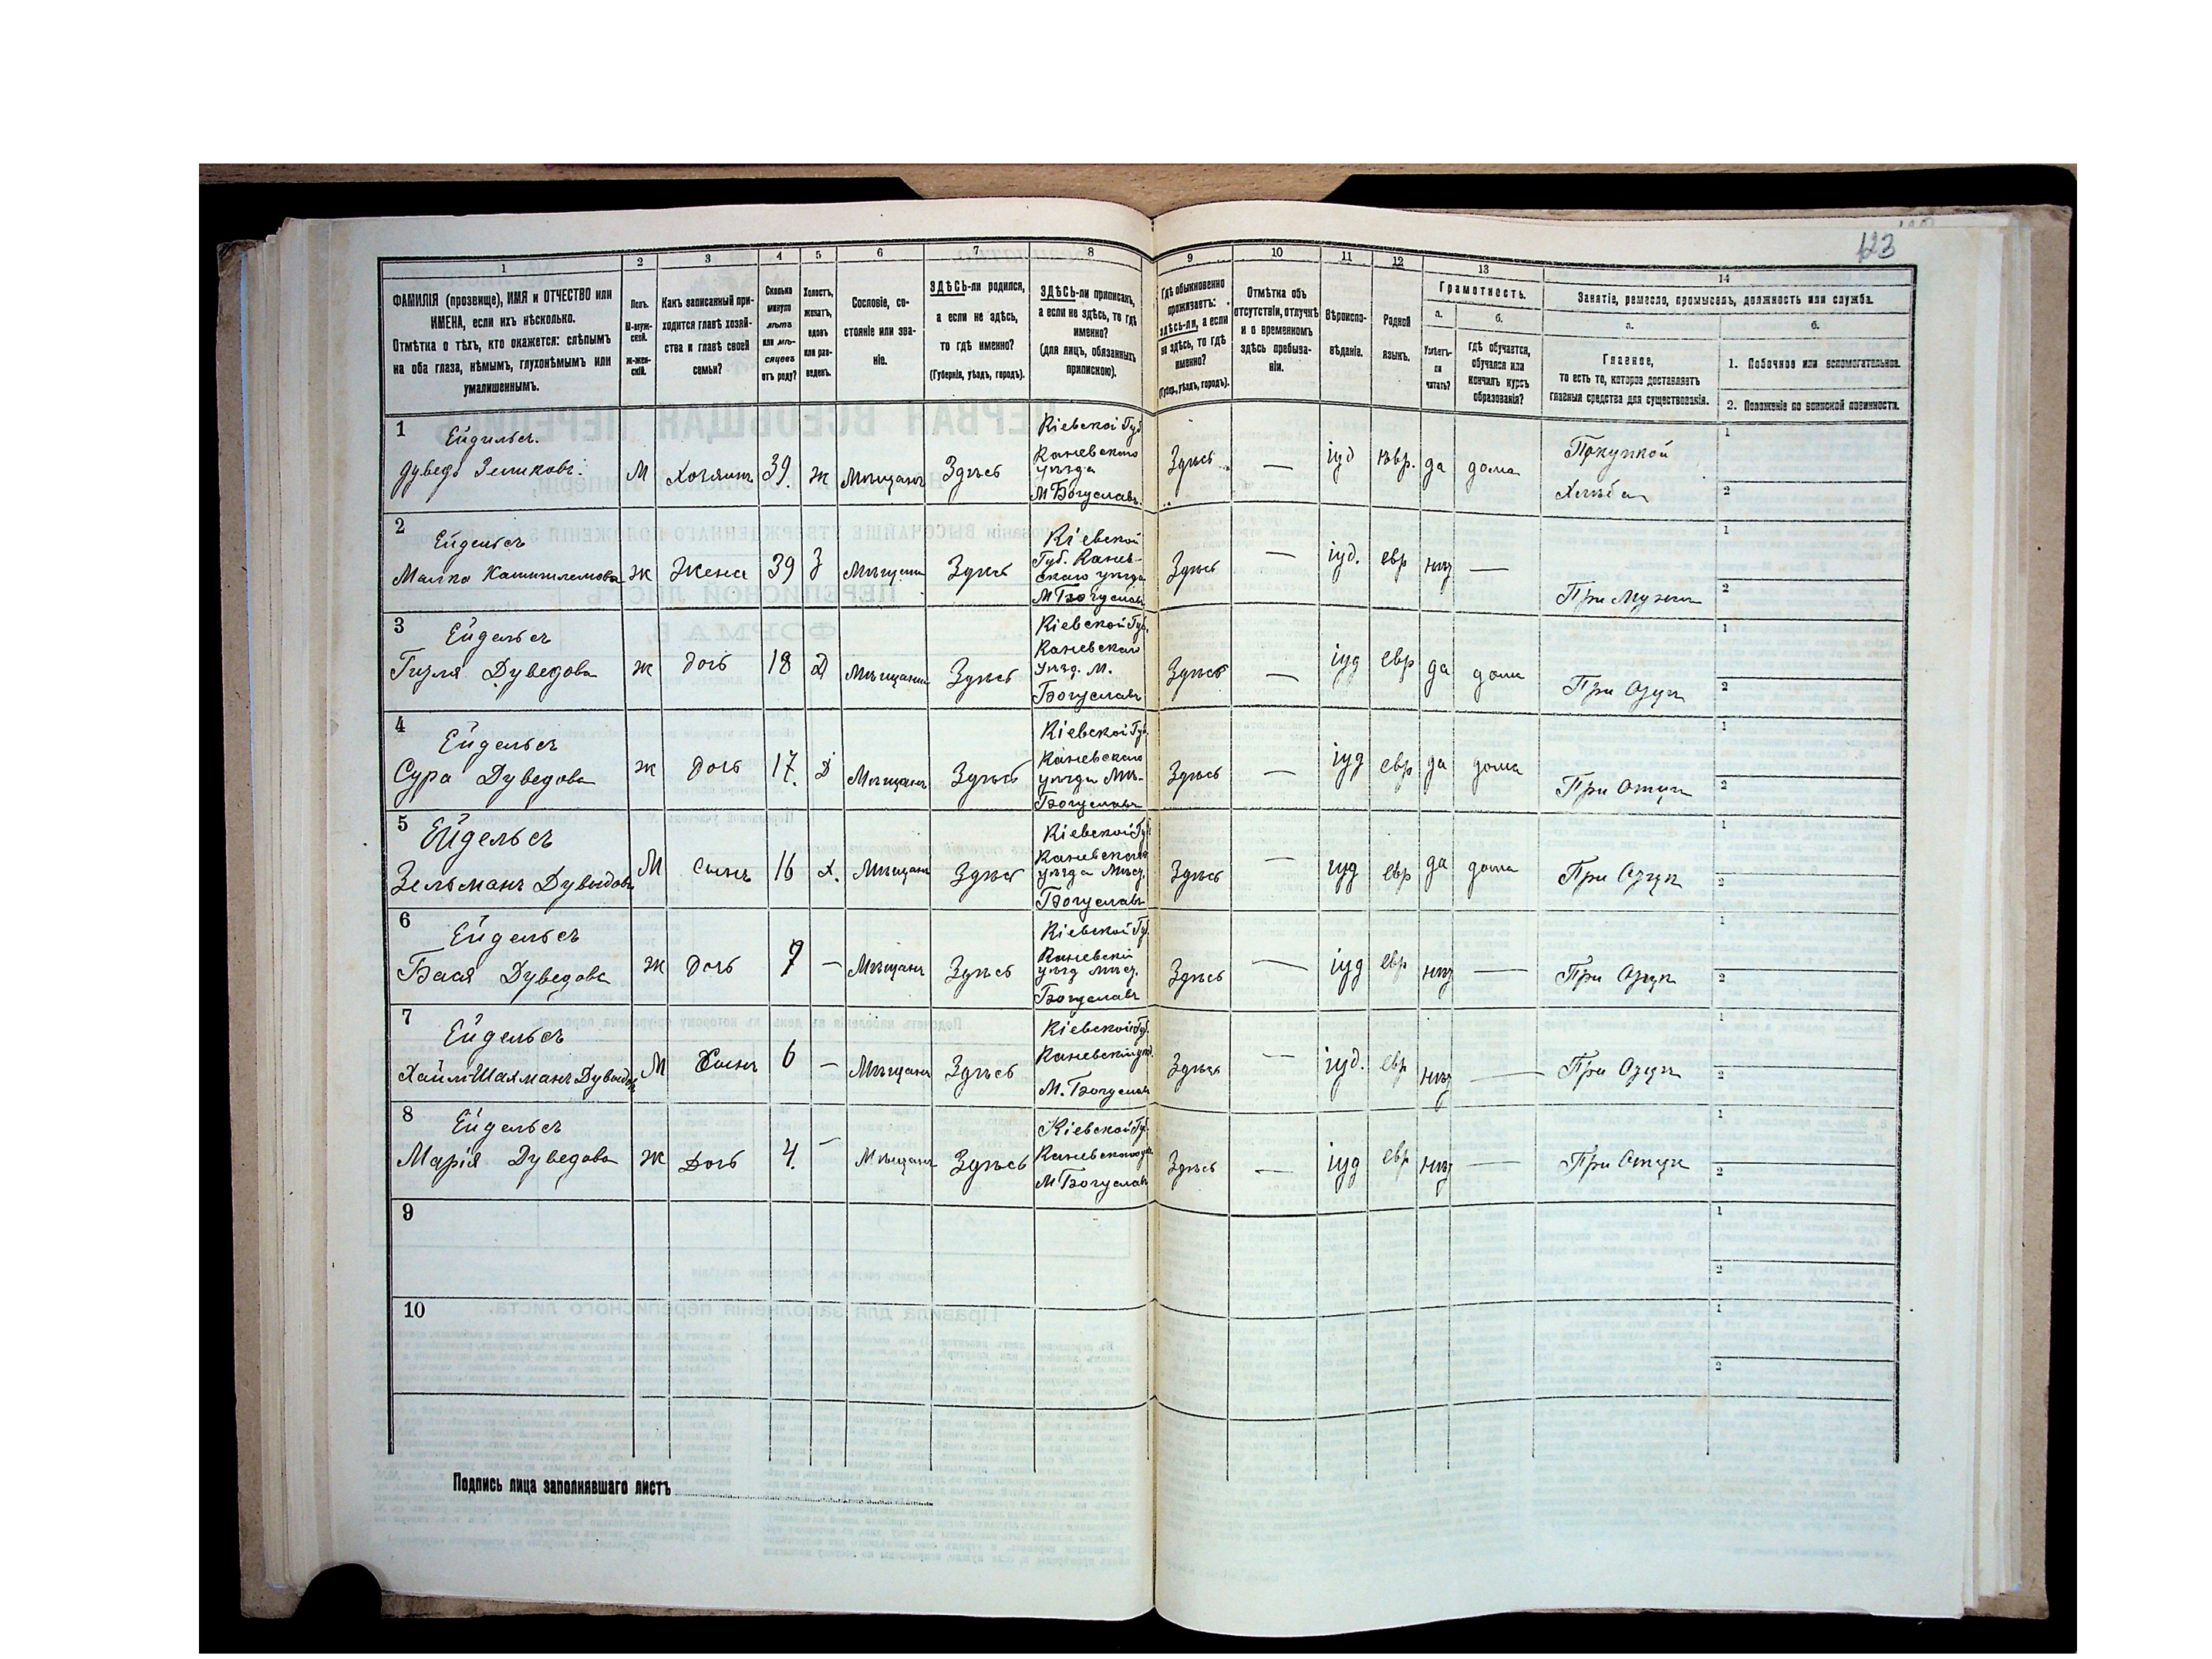 123
1
2
3
4
5
6
7
8
9
10
11
12
13
14
ФАМИЛІЯ (прозвище), ИМЯ и ОТЧЕСТВО или
ИМЕНА, если ихъ нѣсколько.
Отмѣтка о тѣхъ, кто окажется: слѣпымъ
на оба глаза, нѣмымъ, глухонѣмымъ или
умалишеннымъ.
Полъ.
М-муж-
ской.
Ж-жен-
скій.
Какъ записанный при-
ходится главѣ хозяй-
ства и главѣ своей
семьи?
Сколько
минуло
лѣтъ
или мѣ-
сяцевъ
отъ роду?
Холостъ,
женатъ,
вдовъ
или раз-
веденъ.
Сословіе, со-
стояніе или зва-
ніе.
ЗДѢСЬ-ли родился,
а если не здѣсь,
то гдѣ именно?
(Губернія, уѣздъ, городъ).
ЗДѢСЬ-ли приписанъ,
а если не здѣсь, то гдѣ
именно?
(для лицъ, обязанныхъ
припискою).
Гдѣ обыкновенно
проживаетъ:
здѣсь-ли, а если
не здѣсь, то гдѣ
именно?
(Губер., уѣздъ, городъ).
Отмѣтка объ
отсутствіи, отлучкѣ
и о временномъ
здѣсь пребыва-
ніи.
Вѣроиспо-
вѣданіе.
Родной
языкъ.
Грамотность.
а.
Умѣетъ-
ли
читать?
б.
гдѣ обучается,
обучался или
кончилъ курсъ
образованія?
Занятіе, ремесло, промыселъ, должность или служба.
а.
Главное,
то есть то, которое доставляетъ
главныя средства для существованія.
б.
1. Побочное или вспомогательное.
2. Положеніе по воинской повинности.
1
Ейдельсъ.
Дуведъ
М Хозяинъ 39. ж Мѣщанъ Здѣсь
Кіевской Губ
Каневскаго
уѣзда
М Богуславъ
Здѣсь — іуд евр. да дома
Покупкой
Хлѣба
1
2
2
Ейдельсъ
Малка
ж Жена 39 З Здѣсь
Кіевской
Губ. Канев-
скаго уѣзда
М Богуславъ
Здѣсь — іуд. евр нѣт —
При Мужѣ
1
2
3
Ейдельсъ
Дуведова
ж дочь 18 Д Здѣсь
Кіевской Губ.
Каневскаго
Уѣзд. М.
Богуславъ
Здѣсь — іуд евр да дома
При Отцѣ
1
2
4
Ейдельсъ
Сура Дуведова
ж дочь 17. Д Мѣщанъ Здѣсь
Кіевской Губ
Каневскаго
уѣзда Мѣ-
Богуславъ
Здѣсь — іуд евр да дома
При Отцѣ
1
2
5
Ейдельсъ
Зельманъ Дувидовъ
М Сынъ 16 х. Мѣщанъ Здѣсь
Кіевской Губ
Каневскаго
уѣзда Мѣс.
Богуславъ
Здѣсь — іуд евр да дома
При Отцѣ
1
2
6
Ейдельсъ
Бася Дуведова
ж Дочь — Мѣщанъ Здѣсь
Кіевской Губ
Каневскій
уѣзд мѣс.
Богуславъ
Здѣсь — іуд евр нѣт —
При Отцѣ
1
2
7
Ейдельсъ
М Сынъ 6 — Мѣщанъ Здѣсь
Кіевской Губ.
Каневскій
М. Богуславъ
Здѣсь — іуд. евр нѣт —
При Отцѣ
1
2
8
Ейдельсъ
Марія Дуведова
ж Дочь 4. — Мѣщанъ Здѣсь
Кіевской Губ.
Каневскаго
М Богуславъ
Здѣсь — іуд евр нѣт —
При Отцѣ
1
2
9
1
2
10
1
2
Подпись лица заполнявшаго листъ